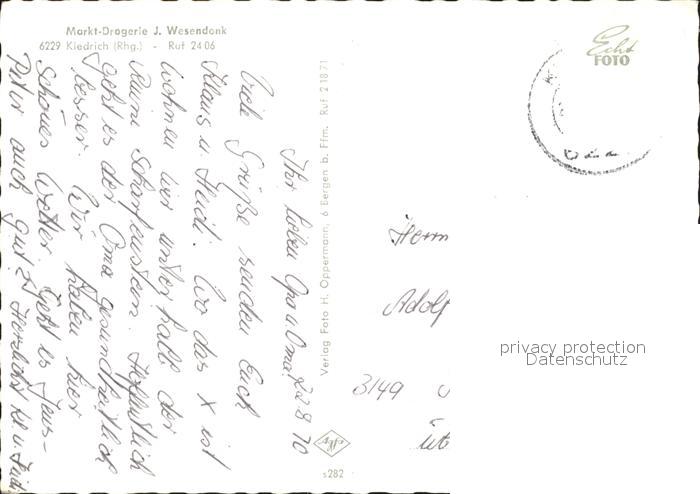 Markt-Drogerie J. Wesendonk
6229 Kiedrich (Rhg.) - Ruf 24 06
Echt
FOTO
Ihr lieben Opa u Oma! 22 8 70
Viele Grüße senden Euch
Klaus u. Heidi. Wo das X ist
wohnen wir unterhalb der
Ruine Scharfenstein. Hoffentlich
geht es der Oma gesundheitlich
besser. Wir haben hier
schönes Wetter. Geht es Jens-
Peter auch gut? Herzlichst Kl u Heidi
Verlag Foto H. Oppermann, 6 Bergen b. Ffm. Ruf 2 18 71
Agfa
s282
Herrn
Adolf
3149
privacy protection
Datenschutz